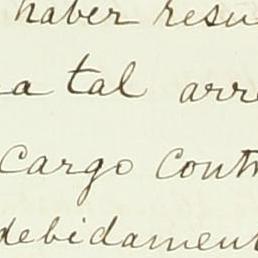 haber resu
a tal arre
cargo contr
debidament